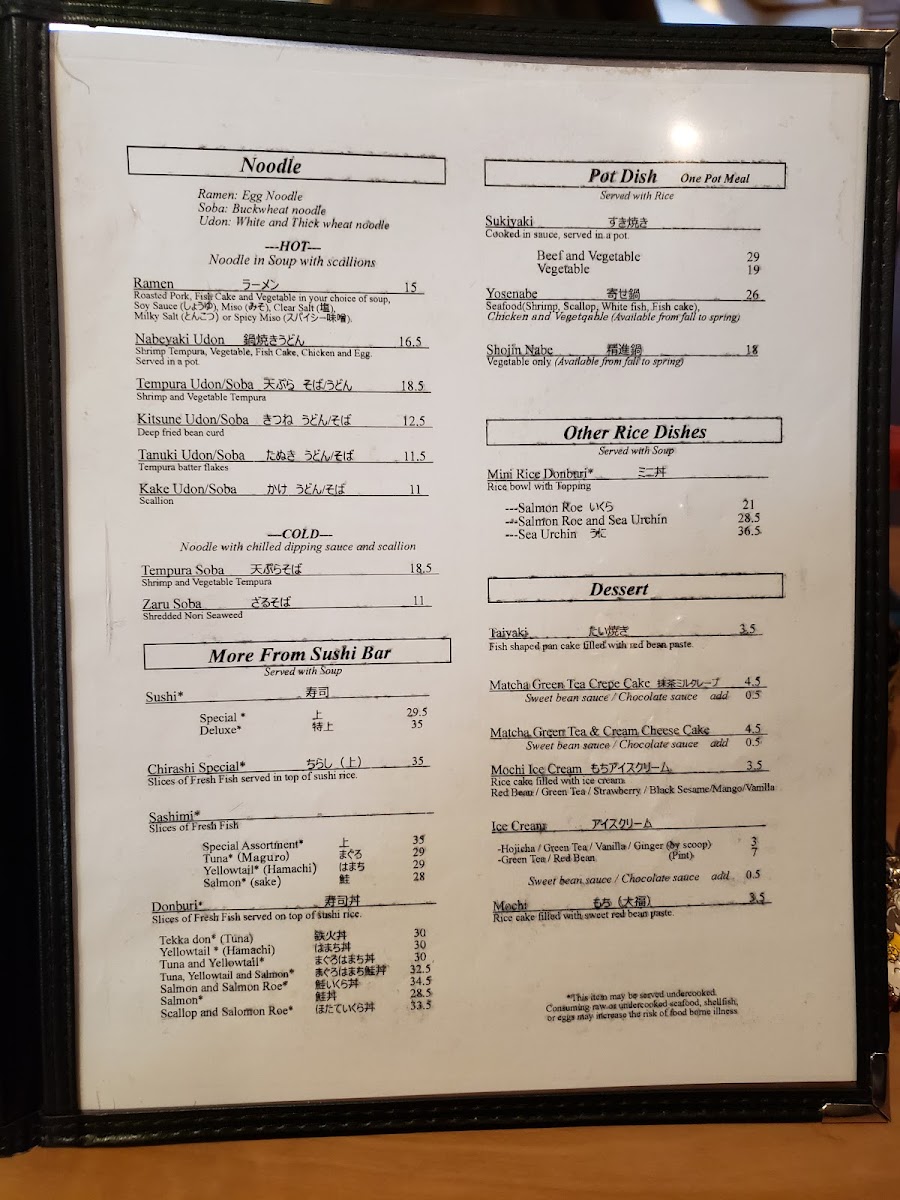 Noodle
Ramen: Egg Noodle
Soba: Buckwheat noodle
Udon: White and Thick wheat noodle
---HOT---
Noodle in Soup with scallions
Ramen ラーメン 15
Roasted Pork, Fish Cake and Vegetable in your choice of soup,
Soy Sauce (しょうゆ), Miso (みそ), Clear Salt (塩),
Milky Salt (とんこつ) or Spicy Miso (スパイシー味噌).
Nabeyaki Udon 鍋焼きうどん 16.5
Shrimp Tempura, Vegetable, Fish Cake, Chicken and Egg.
Served in a pot.
Tempura Udon/Soba 天ぷら そば/うどん 18.5
Shrimp and Vegetable Tempura
Kitsune Udon/Soba きつね うどん/そば 12.5
Deep fried bean curd
Tanuki Udon/Soba たぬき うどん/そば 11.5
Tempura batter flakes
Kake Udon/Soba かけ うどん/そば 11
Scallion
---COLD---
Noodle with chilled dipping sauce and scallion
Tempura Soba 天ぷらそば 18.5
Shrimp and Vegetable Tempura
Zaru Soba ざるそば 11
Shredded Nori Seaweed
More From Sushi Bar
Served with Soup
Sushi* 寿司
Special * 上 29.5
Deluxe* 特上 35
Chirashi Special* ちらし（上） 35
Slices of Fresh Fish served in top of sushi rice.
Sashimi*
Slices of Fresh Fish
Special Assortment* 上 35
Tuna* (Maguro) まぐろ 29
Yellowtail* (Hamachi) はまち 29
Salmon* (sake) 鮭 28
Donburi* 寿司丼
Slices of Fresh Fish served on top of sushi rice.
Tekka don* (Tuna) 鉄火丼 30
Yellowtail * (Hamachi) はまち丼 30
Tuna and Yellowtail* まぐろはまち丼 30
Tuna, Yellowtail and Salmon* まぐろはまち鮭丼 32.5
Salmon and Salmon Roe* 鮭いくら丼 34.5
Salmon* 鮭丼 28.5
Scallop and Salomon Roe* ほたていくら丼 33.5
Pot Dish One Pot Meal
Served with Rice
Sukiyaki すき焼き
Cooked in sauce, served in a pot.
Beef and Vegetable 29
Vegetable 19
Yosenabe 寄せ鍋 26
Seafood(Shrimp, Scallop, White fish, Fish cake),
Chicken and Vegetable (Available from fall to spring)
Shojin Nabe 精進鍋 18
Vegetable only (Available from fall to spring)
Other Rice Dishes
Served with Soup
Mini Rice Donburi* ミニ丼
Rice bowl with Topping
---Salmon Roe いくら 21
---Salmon Roe and Sea Urchin 28.5
---Sea Urchin うに 36.5
Dessert
Taiyaki たい焼き 3.5
Fish shaped pan cake filled with red bean paste.
Matcha Green Tea Crepe Cake 抹茶ミルクレープ 4.5
Sweet bean sauce / Chocolate sauce add 0.5
Matcha Green Tea & Cream Cheese Cake 4.5
Sweet bean sauce / Chocolate sauce add 0.5
Mochi Ice Cream もちアイスクリーム 3.5
Rice cake filled with ice cream.
Red Bean / Green Tea / Strawberry / Black Sesame/Mango/Vanilla
Ice Cream アイスクリーム
-Hojicha / Green Tea / Vanilla / Ginger (by scoop) 3
-Green Tea / Red Bean (Pint) 7
Sweet bean sauce / Chocolate sauce add 0.5
Mochi もち（大福） 3.5
Rice cake filled with sweet red bean paste.
*This item may be served undercooked.
Consuming raw or undercooked seafood, shellfish,
or eggs may increase the risk of food borne illness.